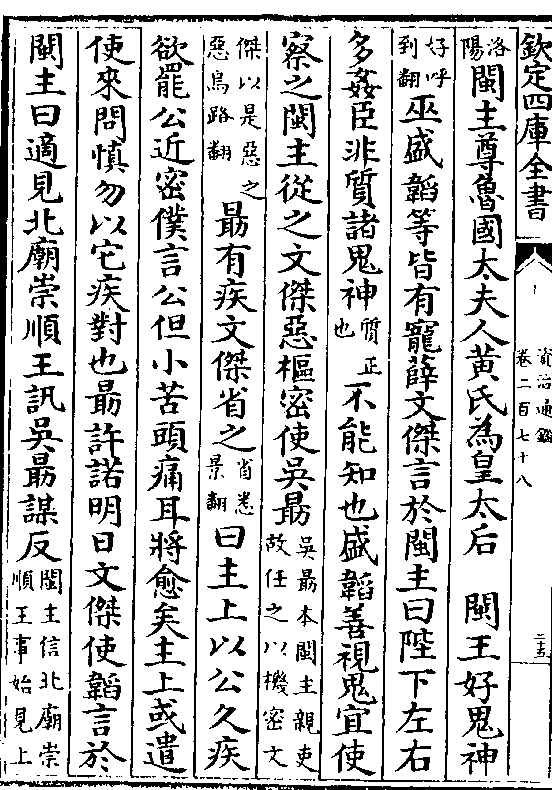 欽定四庫全書
資治通鑑
卷二百七十八
二五
洛陽閩主尊魯國太夫人黄氏為皇太后　閩王好鬼神
好呼到翻巫盛韜等皆有寵薛文傑言於閩主曰陛下左右
多姦臣非質諸鬼神質正也不能知也盛韜善視鬼宜使
察之閩主從之文傑惡樞密使吳朂吳朂本閩主親吏故任之以機密文
傑以是惡之惡烏路翻朂有疾文傑省之省悉景翻曰主上以公久疾
欲罷公近密僕言公但小苦頭痛耳將愈矣主上或遣
使來問慎勿以它疾對也朂許諾明日文傑使韜言於
閩主曰適見北廟崇順王訊吳朂謀反閩主信北廟崇順王事始見上